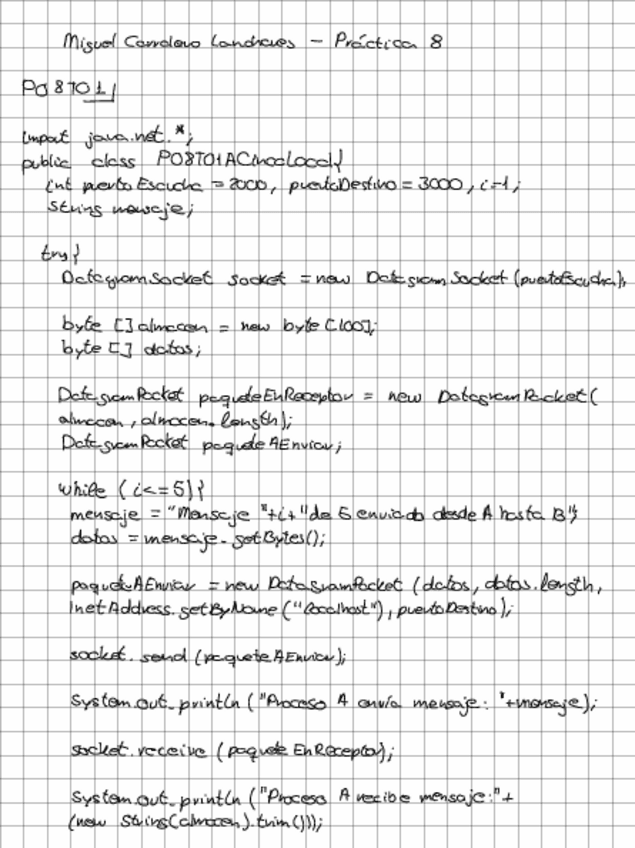 Miguel Carralero Landraes - Práctica 8
P08T01
import java.net.*;
public class P08T01ACinooLocal{
int puertoEscucha = 2000, puertoDestino = 3000, i=1;
String mensaje;
try{
DatagramSocket socket = new DatagramSocket (puertoEscucha);
byte [] almacen = new byte [100];
byte [] datos;
DatagramPacket paqueteEnReceptor = new DatagramPacket(
almacen, almacen.length);
DatagramPacket paqueteAEnviar;
while (i<=5){
mensaje = "Mensaje "+i+"de 5 enviado desde A hasta B";
datos = mensaje.getBytes();
paqueteAEnviar = new DatagramPacket (datos, datos.length,
InetAddress.getByName ("localhost"), puertoDestino);
socket.send (paqueteAEnviar);
System.out.println ("Proceso A envía mensaje: "+mensaje);
socket.receive (paqueteEnReceptor);
System.out.println ("Proceso A recibe mensaje:"+
(new String(almacen).trim()));